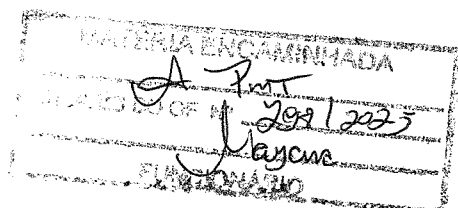 MATÉRIA ENCAMINHADA
A PMT
DO OF Nº 298/2025
Mayane
FUNCIONÁRIO